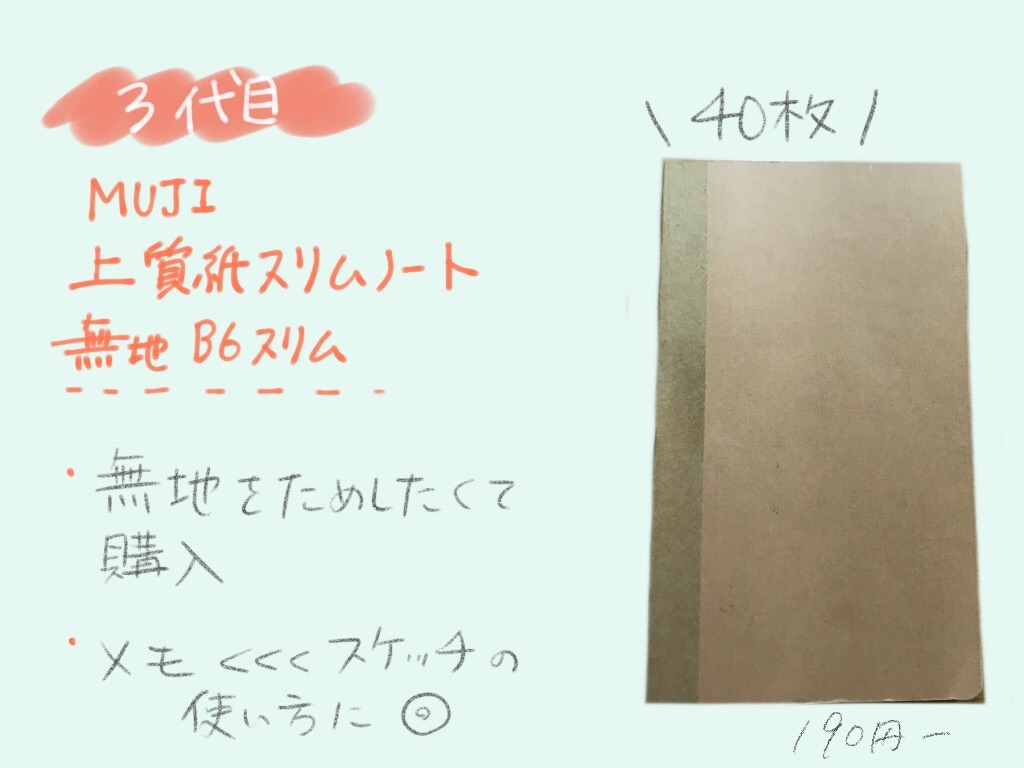 3代目
MUJI
上質紙スリムノート
無地 B6スリム
・無地をためしたくて
購入
・メモ <<< スケッチの
使い方に ◎
\ 40枚 /
190円ー